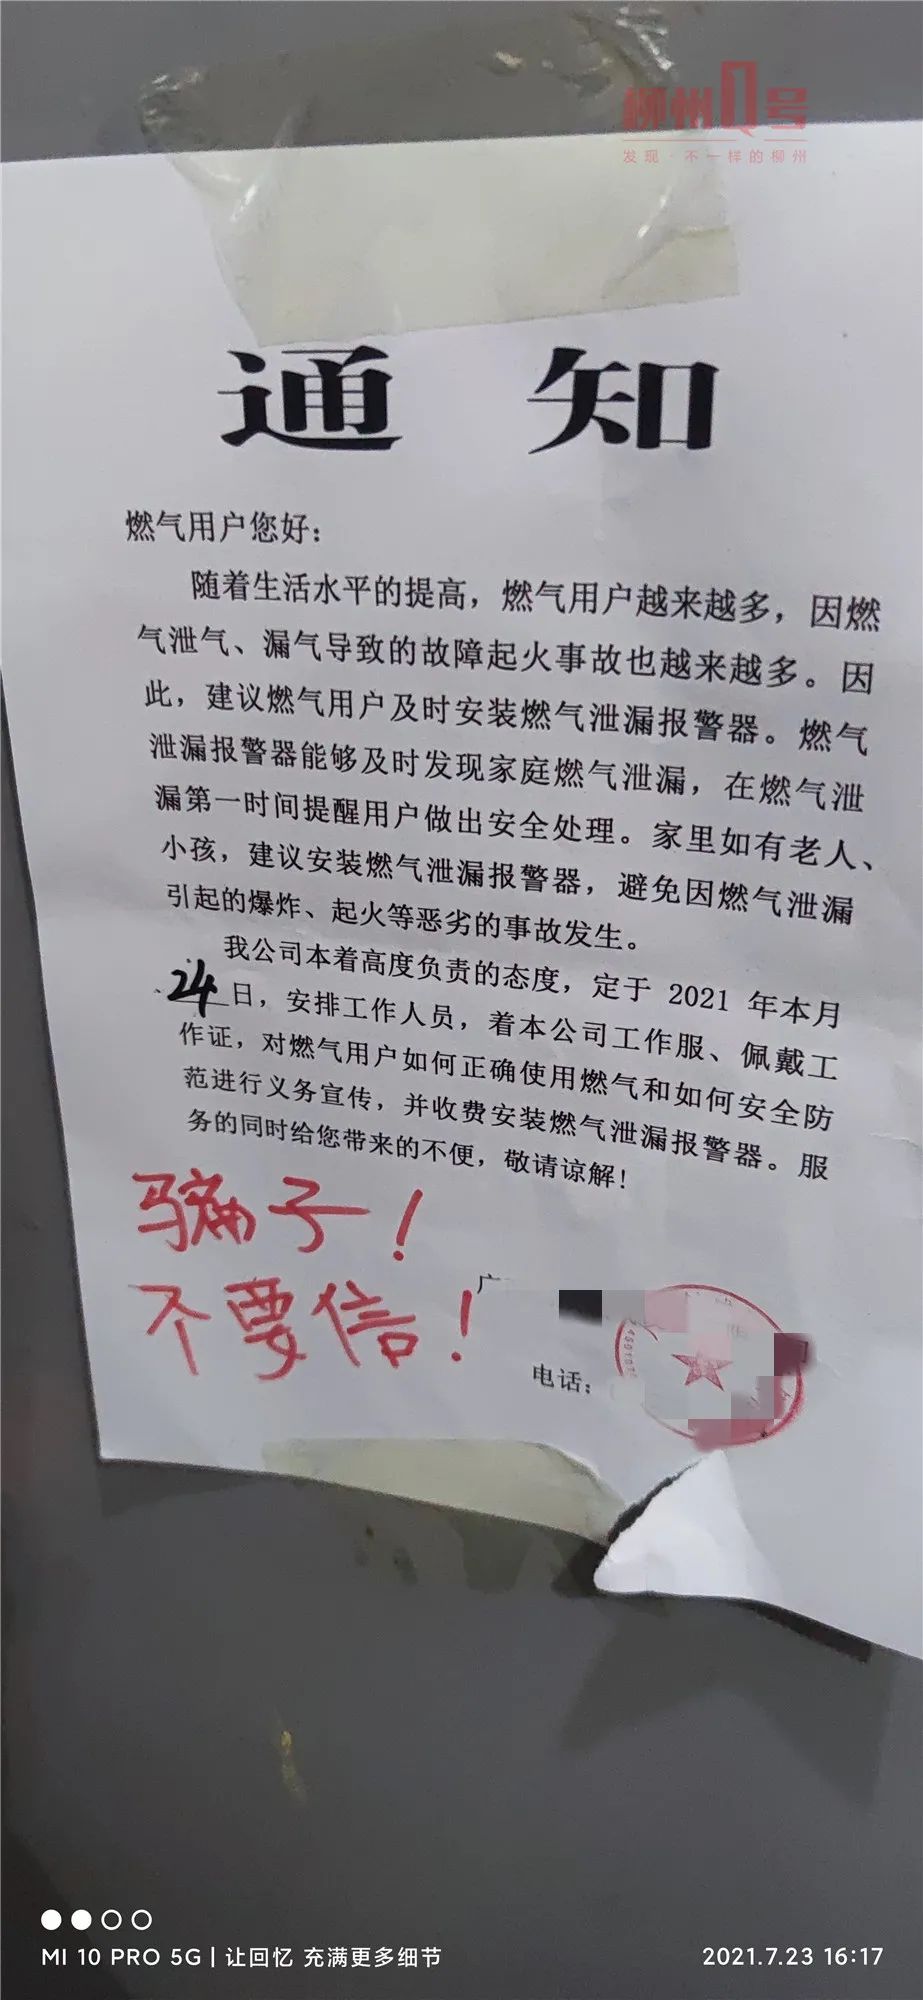 柳州Q号
发现·不一样的柳州
通知
燃气用户您好：
随着生活水平的提高，燃气用户越来越多，因燃
气泄气、漏气导致的故障起火事故也越来越多。因
此，建议燃气用户及时安装燃气泄漏报警器。燃气
泄漏报警器能够及时发现家庭燃气泄漏，在燃气泄
漏第一时间提醒用户做出安全处理。家里如有老人、
小孩，建议安装燃气泄漏报警器，避免因燃气泄漏
引起的爆炸、起火等恶劣的事故发生。
我公司本着高度负责的态度，定于 2021 年本月
24日，安排工作人员，着本公司工作服、佩戴工
作证，对燃气用户如何正确使用燃气和如何安全防
范进行义务宣传，并收费安装燃气泄漏报警器。服
务的同时给您带来的不便，敬请谅解！
骗子！
不要信！
广
电话：
MI 10 PRO 5G | 让回忆 充满更多细节
2021.7.23 16:17